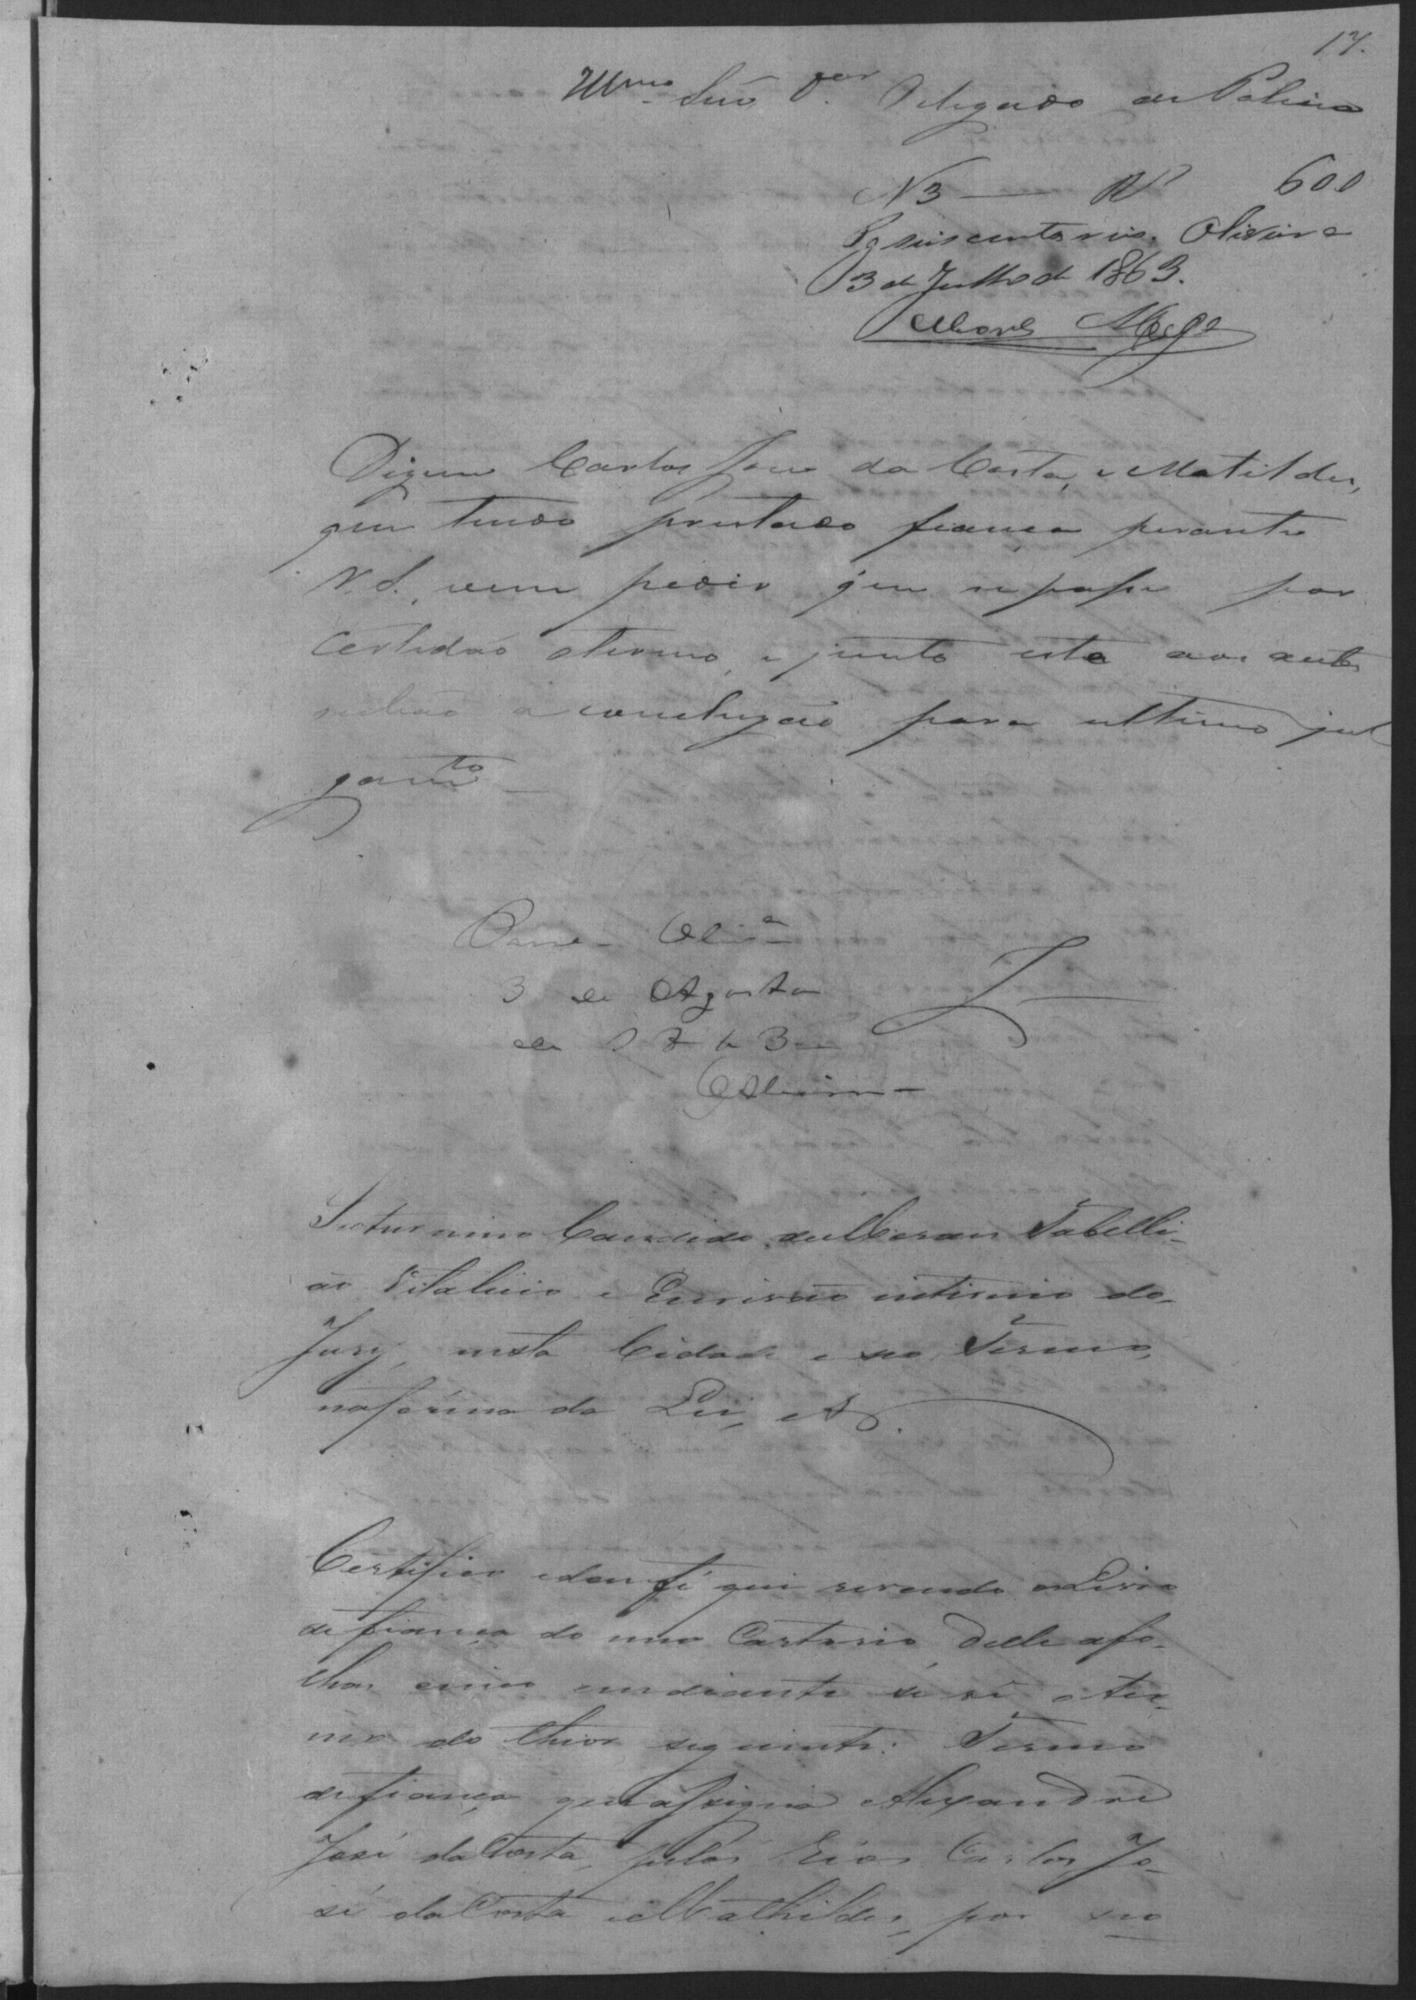 17.
Illmo Snr Dor Delegado de Policia
N 3 — R 600
Pg seiscentos reis. Oliveira
3 de Julho de 1863.
Dizem Carlos Jose da Costa, e Matildes,
que tendo prestado fiança perante
V. S., vem pedir que se passe por
certidão o termo, e junto esta aos autos
a conclusão para ultimo jul
gamto
Passe Olivra
3 de Agosto
de 1863
Saturnino Candido de Moraes Tabelli-
ão Vitalicio e Escrivão interino do
Jury, nesta Cidade e seo Termo,
na forma da Lei, etc.
Certifico e dou fé que revendo o Livro
de fiança do meu Cartorio, delle a fo-
lhas cinco em diante se vê o ter-
mo do theor seguinte: Termo
de fiança que assigna Alexandre
José da Costa, pelos Réos Carlos Jo-
sé da Costa e Mathildes, por seo